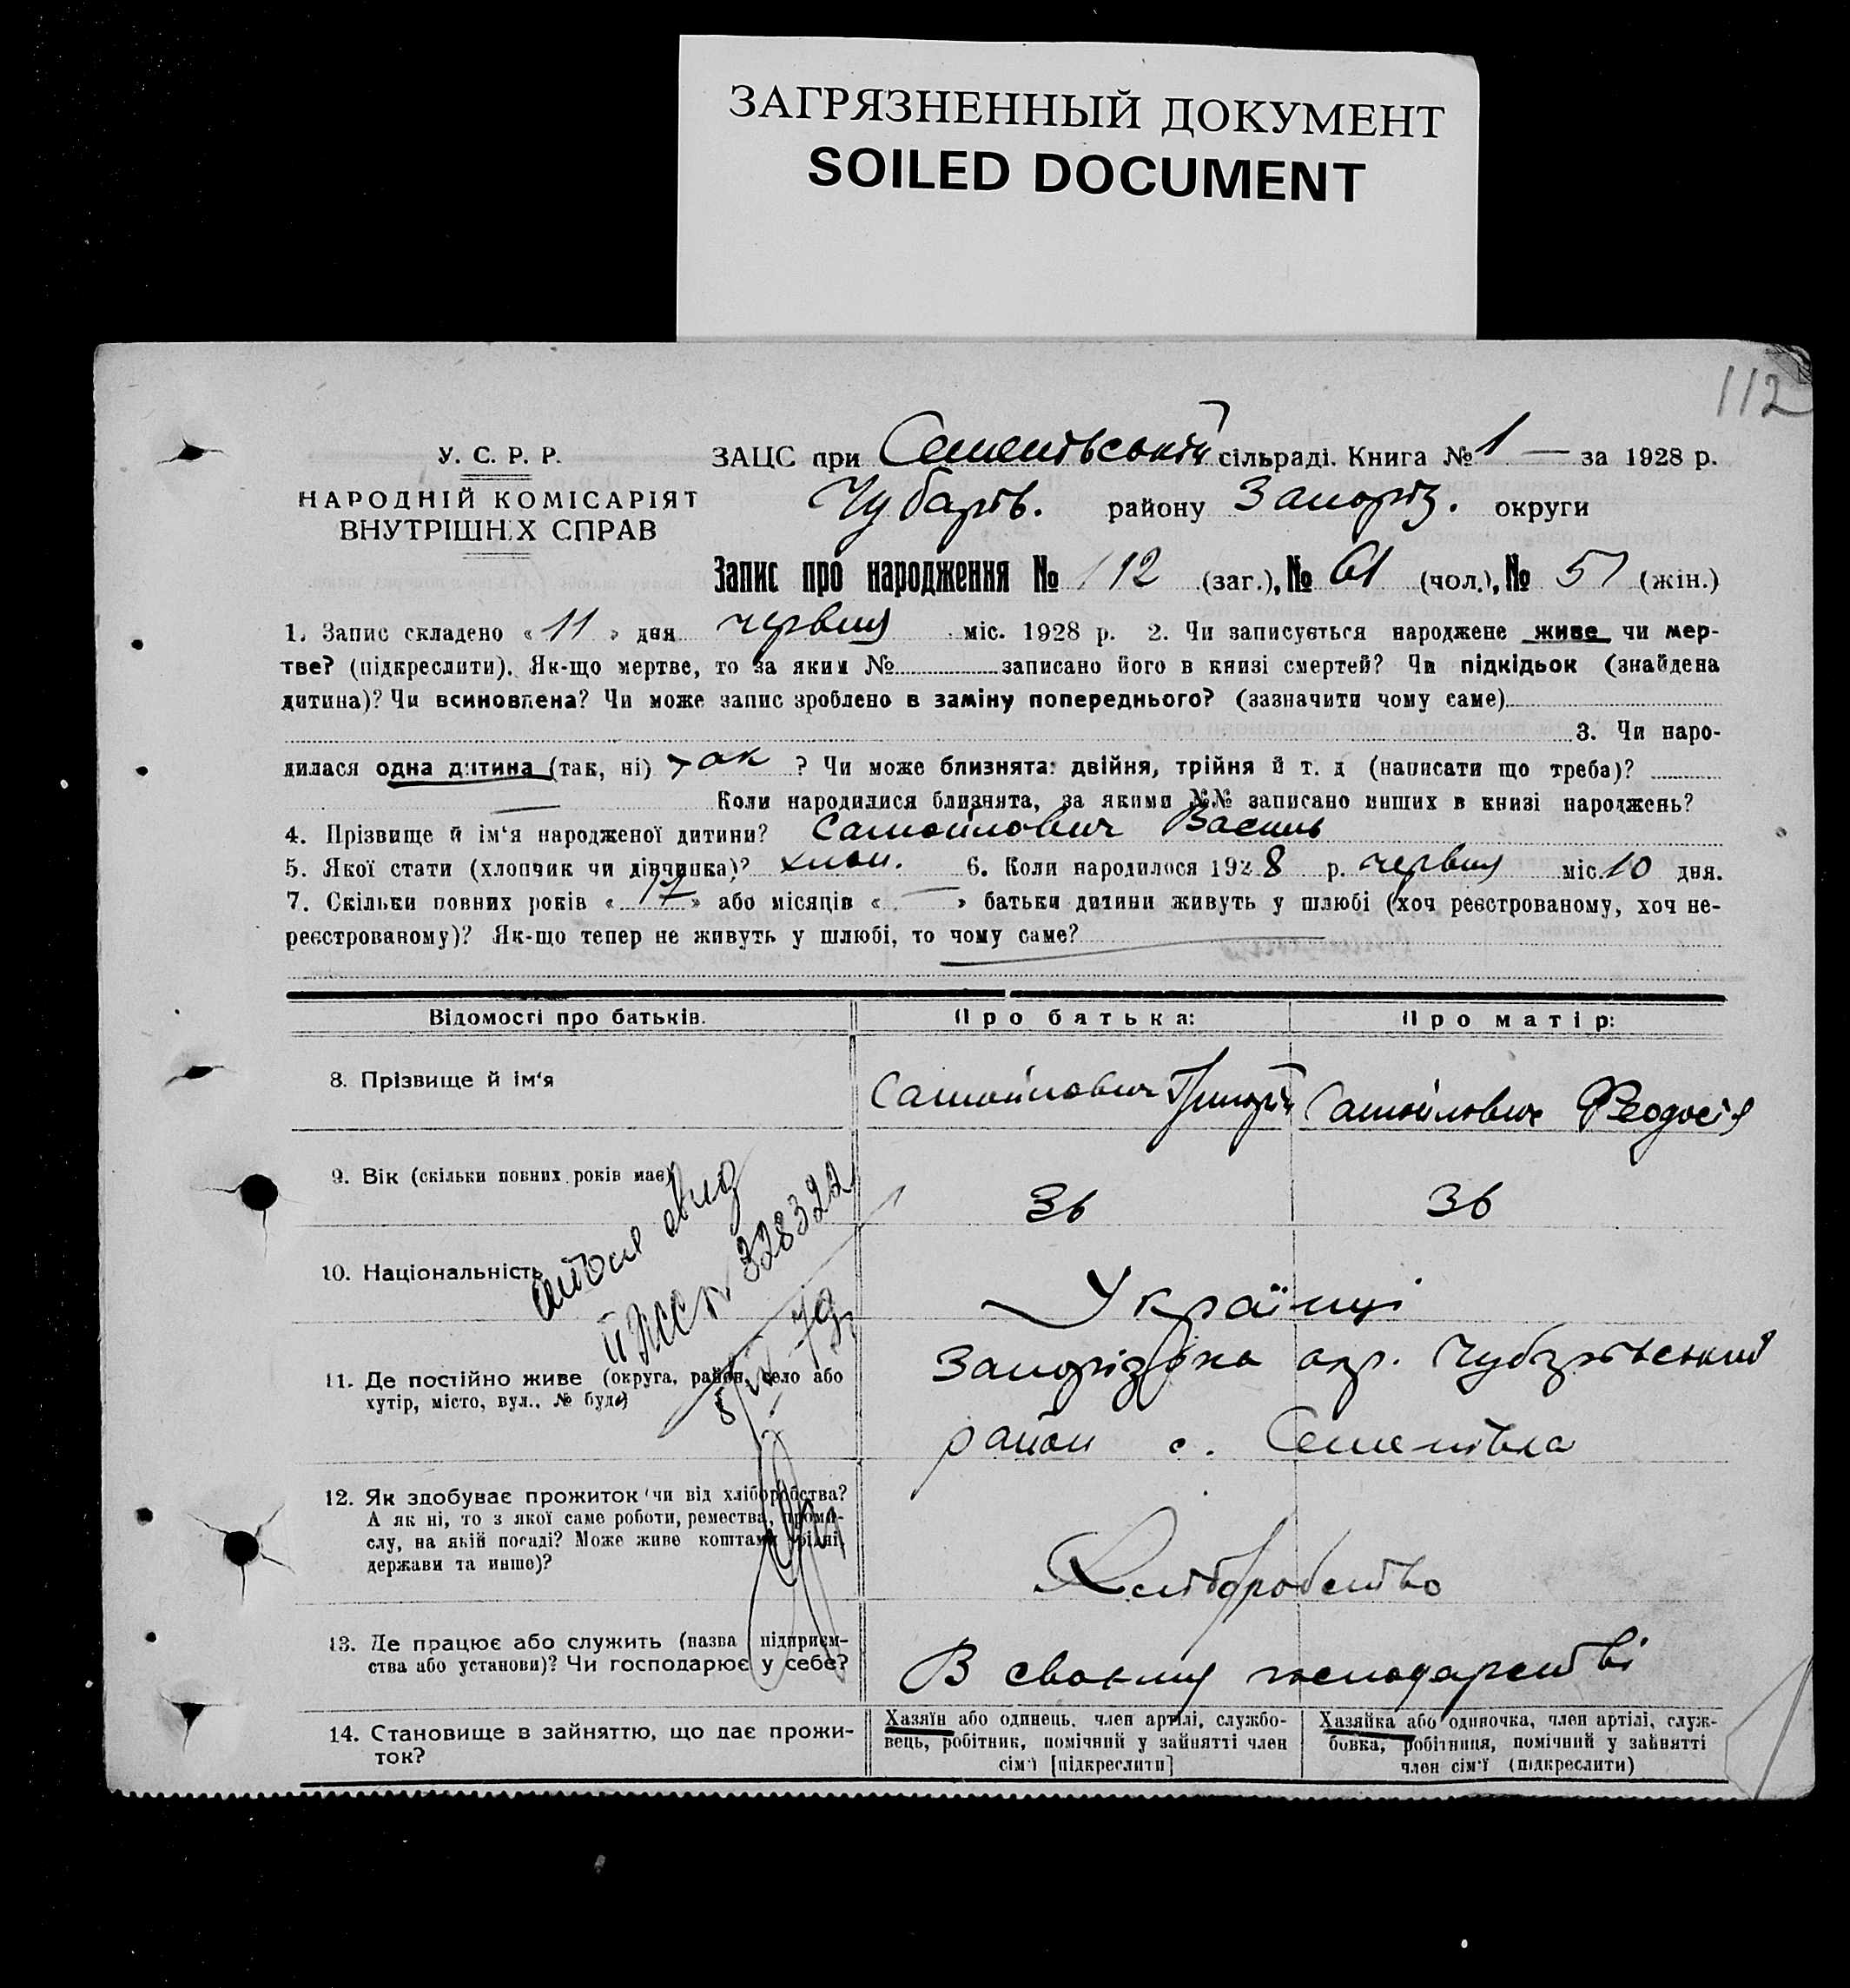 ЗАГРЯЗНЕННЫЙ ДОКУМЕНТ
SOILED DOCUMENT
112
У. С. Р. Р.
НАРОДНІЙ КОМІСАРІЯТ
ВНУТРІШНІХ СПРАВ
ЗАЦС при Семенівській сільраді. Книга № 1 — за 1928 р.
Чубарів. району Запоріз. округи
Запис про народження № 112 (заг.), № 61 (чол.), № 51 (жін.)
1. Запис складено « 11 » дня червня міс. 1928 р. 2. Чи записується народжене живе чи мер-
тве? (підкреслити). Як-що мертве, то за яким № записано його в книзі смертей? Чи підкідьок (знайдена
дитина)? Чи всиновлена? Чи може запис зроблено в заміну попереднього? (зазначити чому саме)
3. Чи наро-
дилася одна дитина (так, ні) так ? Чи може близнята: двійня, трійня й т. д (написати що треба)?
— Коли народилися близнята, за якими №№ записано инших в книзі народжень?
4. Прізвище й ім'я народженої дитини? Самойлович Василь
5. Якої стати (хлопчик чи дівчинка)? хлоп. 6. Коли народилося 1928 р. червня міс. 10 дня.
7. Скільки повних років « 17 » або місяців « — » батьки дитини живуть у шлюбі (хоч реєстрованому, хоч не-
реєстрованому)? Як-що тепер не живуть у шлюбі, то чому саме? —
Відомості про батьків. Про батька: Про матір:
8. Прізвище й ім'я Самойлович Григорій Самойлович Феодосія
9. Вік (скільки повних років має) 36 36
10. Національність Українці
328322
11. Де постійно живе (округа, район, село або
хутір, місто, вул., № буд.)
Запорізька окр. Чубарівський
район с. Семенівка
12. Як здобуває прожиток (чи від хліборобства?
А як ні, то з якої саме роботи, ремества, промис-
слу, на якій посаді? Може живе коштами рідні,
держави та инше)?
Хліборобство
13. Де працює або служить (назва підприєм-
ства або установи)? Чи господарює у себе?
В своєму господарстві
14. Становище в зайняттю, що дає прожи-
ток?
Хазяїн або одинець, член артілі, службо-
вець, робітник, помічний у зайнятті член
сім'ї [підкреслити]
Хазяйка або одиночка, член артілі, служ-
бовка, робітниця, помічний у зайнятті
член сім'ї (підкреслити)